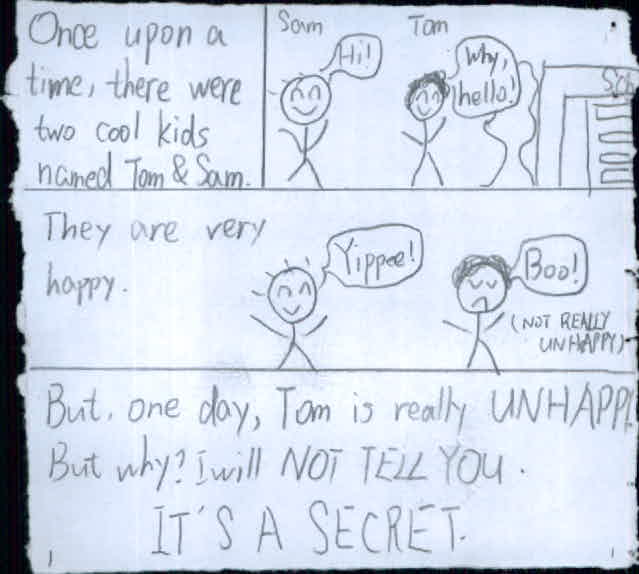 Once upon a
time, there were
two cool kids
named Tom & Sam.
Sam
Hi!
Tom
Why,
hello!
They are very
happy.
Yippee!
Boo!
(NOT REALLY
UNHAPPY)
But, one day, Tom is really UNHAPPY!
But why? I will NOT TELL YOU.
IT'S A SECRET.